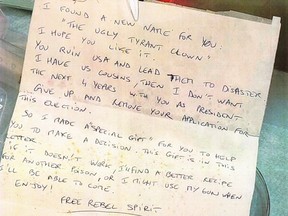 I FOUND A NEW NAME FOR YOU.
"THE UGLY TYRANT CLOWN"
I HOPE YOU LIKE IT.
YOU RUIN USA AND LEAD THEM TO DISASTER
I HAVE US COUSINS THEN I DON'T WANT
THE NEXT 4 YEARS WITH YOU AS PRESIDENT.
GIVE UP AND REMOVE YOUR APPLICATION FOR
THIS ELECTION.
SO I MADE A "SPECIAL GIFT" FOR YOU TO HELP
YOU TO MAKE A DECISION. THIS GIFT IS IN THIS
LETTER
IF IT DOESN'T WORK, I'LL FIND A BETTER RECIPE
FOR ANOTHER POISON, OR I MIGHT USE MY GUN WHEN
I'LL BE ABLE TO COME.
ENJOY!
FREE REBEL SPIRIT